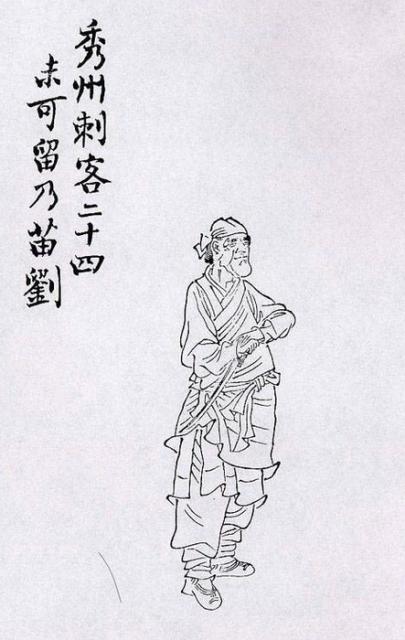 秀州刺客二十四
未可留乃苗劉